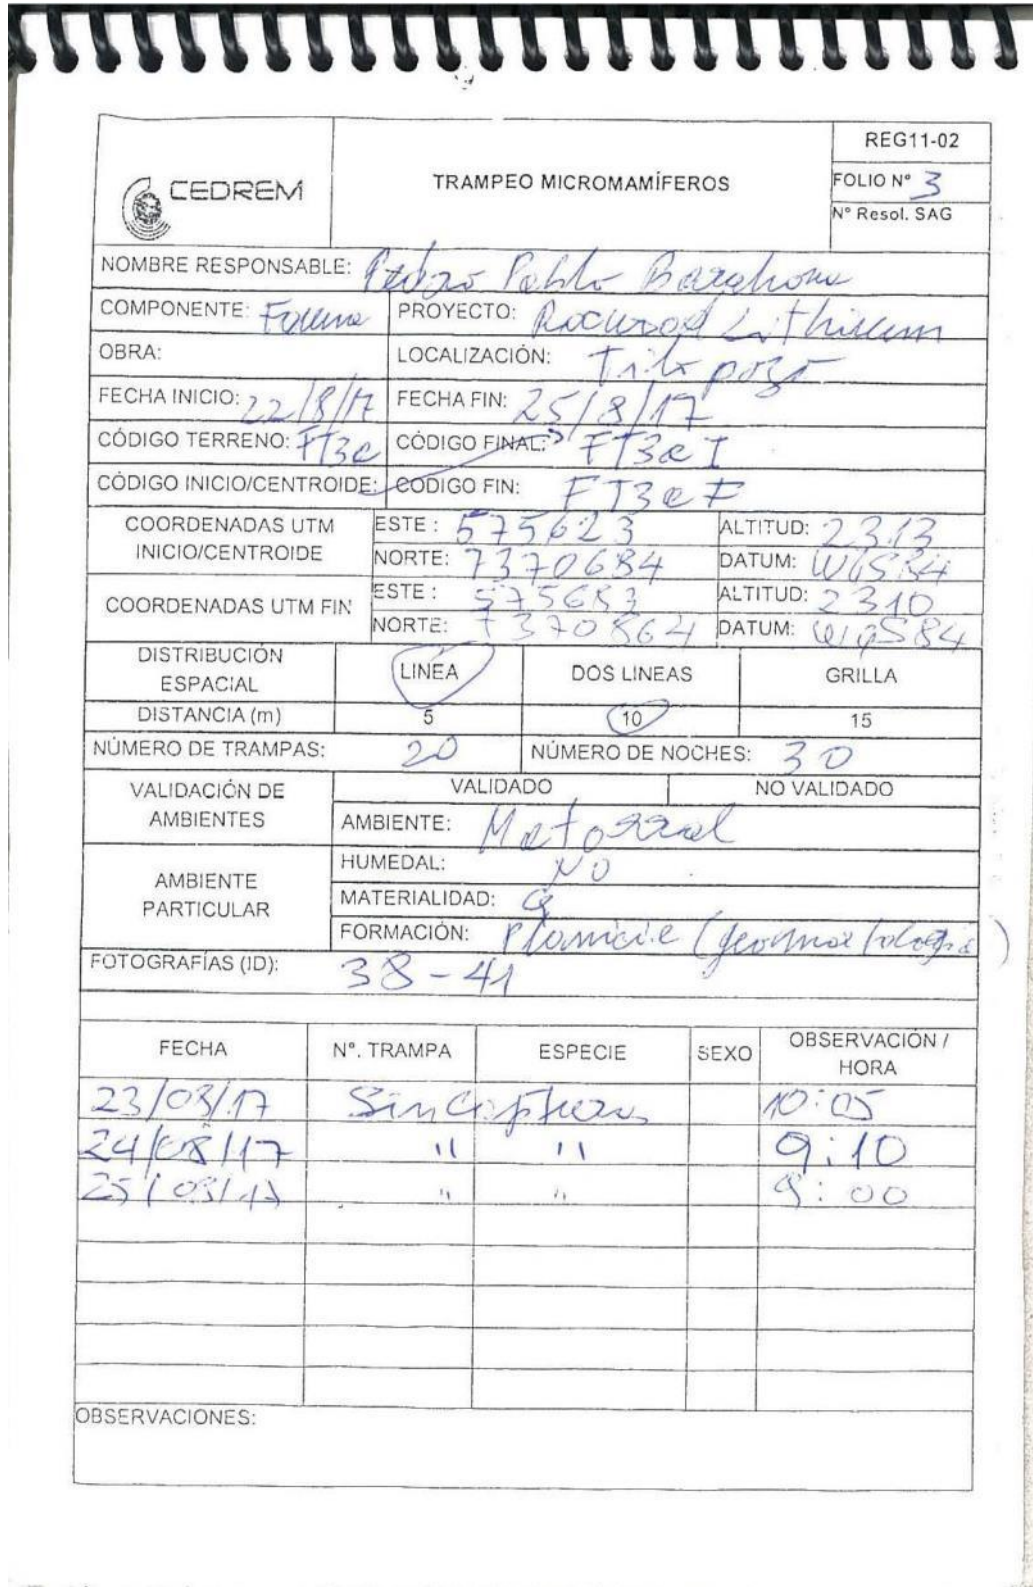 CEDREM
TRAMPEO MICROMAMÍFEROS
REG11-02
FOLIO Nº 3
Nº Resol. SAG
NOMBRE RESPONSABLE: Pedro Pablo Barahona
COMPONENTE: Fauna PROYECTO: Lithium
OBRA: LOCALIZACIÓN: Tilopozo
FECHA INICIO: 22/8/17 FECHA FIN: 25/8/17
CÓDIGO TERRENO: FT3a CÓDIGO FINAL: FT3a I
CÓDIGO INICIO/CENTROIDE: CÓDIGO FIN: FT3a F
COORDENADAS UTM INICIO/CENTROIDE ESTE: 575623 ALTITUD: 2313
NORTE: 7370684 DATUM: WGS84
COORDENADAS UTM FIN ESTE: 575683 ALTITUD: 2310
NORTE: 7370864 DATUM: WGS84
DISTRIBUCIÓN ESPACIAL LINEA DOS LINEAS GRILLA
DISTANCIA (m) 5 10 15
NÚMERO DE TRAMPAS: 20 NÚMERO DE NOCHES: 30
VALIDACIÓN DE AMBIENTES VALIDADO NO VALIDADO
AMBIENTE: Matorral
AMBIENTE PARTICULAR HUMEDAL: NO
MATERIALIDAD:
FORMACIÓN: Planicie
FOTOGRAFÍAS (ID): 38-41
FECHA Nº. TRAMPA ESPECIE SEXO OBSERVACIÓN / HORA
23/08/17 Sin Captura 10:05
24/08/17 " " 9:10
25/08/17 " " 9:00
OBSERVACIONES: